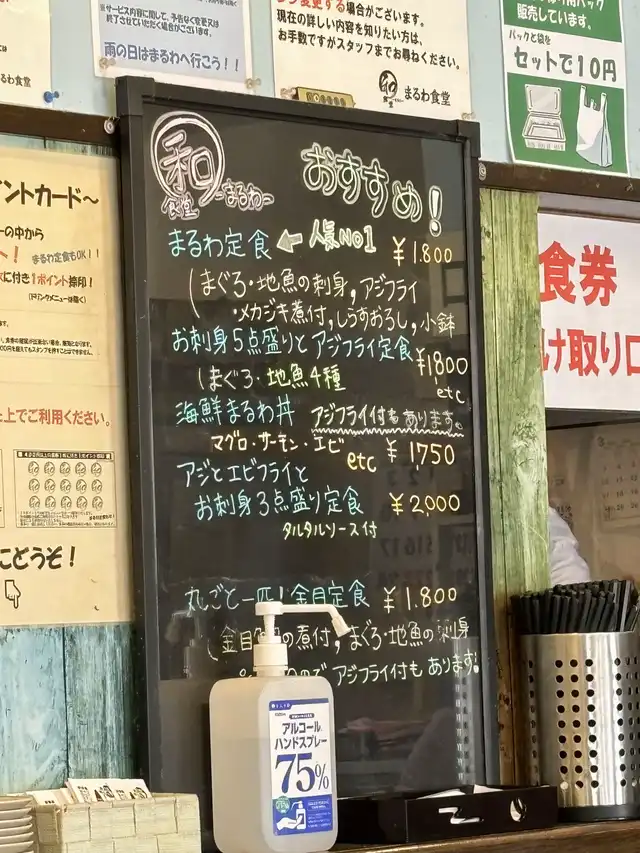 ※サービス内容に関して、予告なく変更又は
終了させていただく場合がございます。
雨の日はまるわへ行こう！！
変更する場合がございます。
現在の詳しい内容を知りたい方は、
お手数ですがスタッフまでお尋ねください。
和
まるわ食堂
販売しています。
パックと袋を
セットで10円
イントカード～
ーの中から
まるわ定食もOK！！
に付き1ポイント捺印！
上でご利用ください。
にどうぞ！
食券
け取り口
和
食堂
-まるわ-
おすすめ！
まるわ定食 ← 人気NO1 ￥1.800
(まぐろ・地魚の刺身，アジフライ
・メカジキ煮付，しらすおろし，小鉢
お刺身5点盛りとアジフライ定食 ￥1800
(まぐろ・地魚4種 etc
海鮮まるわ丼 アジフライ付もあります。
マグロ・サーモン・エビ etc ￥1,750
アジとエビフライと
お刺身3点盛り定食 ￥2,000
タルタルソース付
丸ごと一匹！金目定食 ￥1.800
(金目の煮付，まぐろ・地魚の刺身
アジフライ付もあります!
アルコール
ハンドスプレー
75%